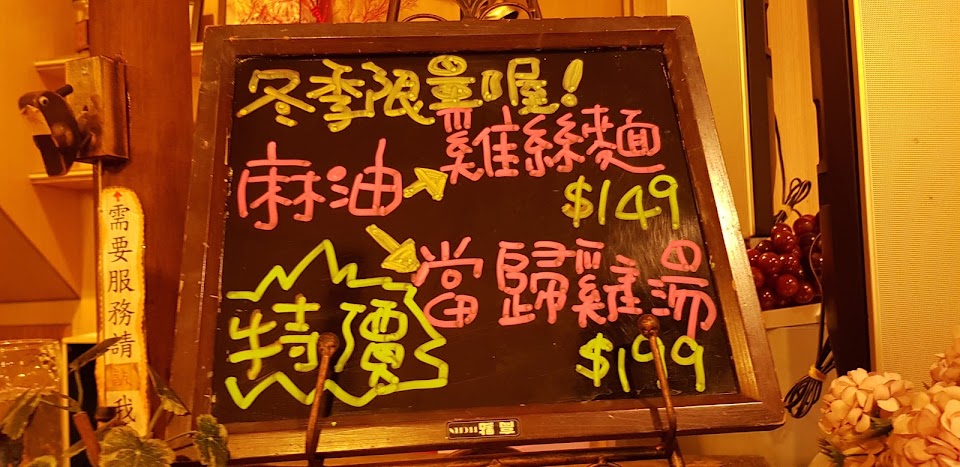 冬季限量喔!
麻油
雞絲麵
$149
當歸雞湯
$199
特價
需要服務請
我